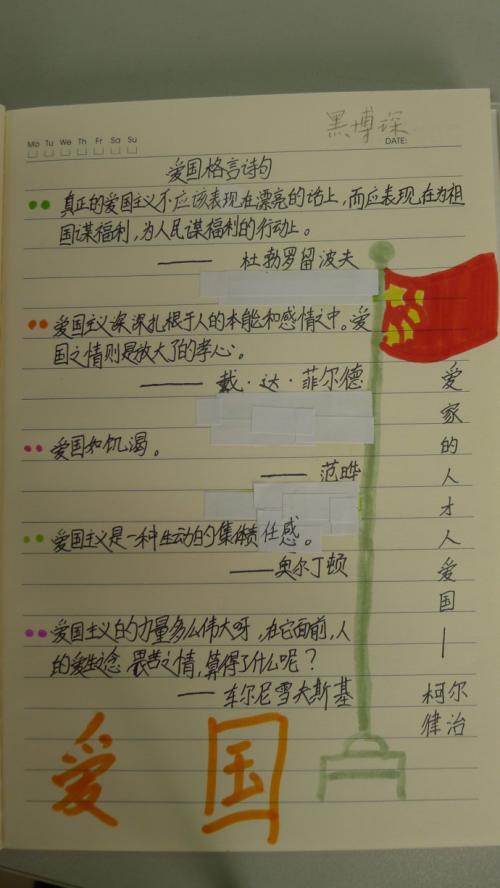 黑博琛
Mo Tu We Th Fr Sa Su
DATE:
爱国格言诗句
真正的爱国主义不应该表现在漂亮的话上，而应表现在为祖
国谋福利，为人民谋福利的行动上。
—— 杜勃罗留波夫
爱国主义深深扎根于人的本能和感情之中。爱
国之情则是放大了的孝心。
—— 戴·达·菲尔德
爱国如饥渴。
—— 范晔
爱国主义是一种生动的集体责任感。
——奥尔丁顿
爱国主义的力量多么伟大呀，在它面前，人
的爱生之念 畏苦之情，算得了什么呢？
——车尔尼雪夫斯基
爱家的人才人爱国—
柯尔
律治
爱国